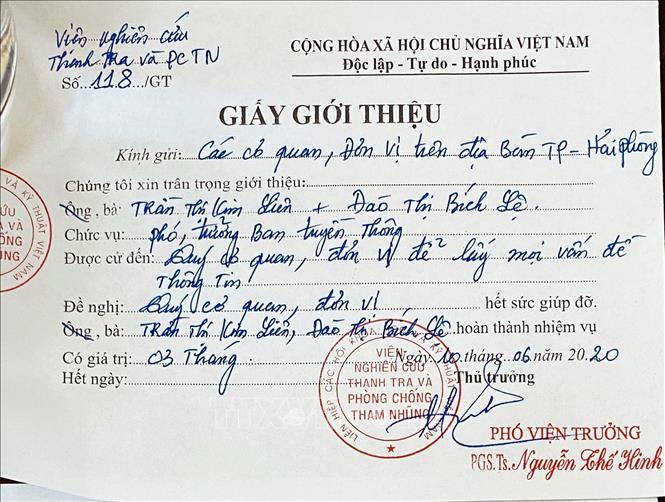 Viện nghiên cứu
Thanh Tra và PCTN
Số...118.../GT
CỘNG HÒA XÃ HỘI CHỦ NGHĨA VIỆT NAM
Độc lập - Tự do - Hạnh phúc
GIẤY GIỚI THIỆU
Kính gửi: Các cơ quan, Đơn vị trên địa Bàn TP - Hải phòng
Chúng tôi xin trân trọng giới thiệu:
Ông, bà: Trần Thị Kim Liên + Đào Thị Bích Lệ.
Chức vụ: phó, trưởng Ban truyền Thông
Được cử đến: Quý cơ quan, đơn vị để lấy mọi vấn đề
Thông Tin
Đề nghị: Quý cơ quan, đơn vị, hết sức giúp đỡ.
Ông, bà: Trần Thị Kim Liên, Đào Thị Bích Lệ. hoàn thành nhiệm vụ
Có giá trị: 03 Tháng.
Ngày.10.tháng.06.năm 20.20
Hết ngày:
Thủ trưởng
LIÊN HIỆP CÁC HỘI KHOA HỌC VÀ KỸ THUẬT VIỆT NAM
VIỆN
NGHIÊN CỨU
THANH TRA VÀ
PHÒNG CHỐNG
THAM NHŨNG
PHÓ VIỆN TRƯỞNG
PGS.Ts. Nguyễn Thế Hinh
VÀ KỸ THUẬT VIỆT NAM
CỨU
RA VÀ
CHỐNG
NHŨNG